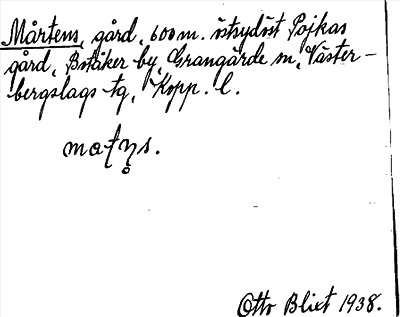 Mårtens, gård, 600 m. östsydöst Pojkas
gård, Botåker by, Grangärde sn, Väster-
bergslags tg, Kopp. l.
Otto Blixt 1938.